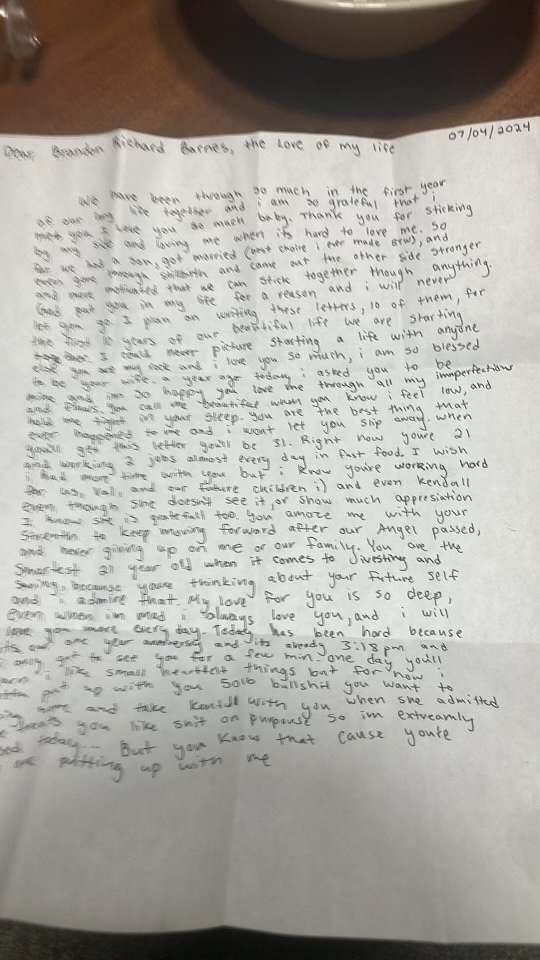 07/04/2024
Dear, Brandon Richard Barnes, the love of my life
We have been through so much in the first year
of our life together and i am so grateful that i
met you I Love you so much baby. Thank you for sticking
by my side and loving me when its hard to love me. So
far we had a son, got married (best choice i ever made btws), and
even gone through stillbirth and came out the other side stronger
and more motivated that we can stick together though anything.
God put you in my life for a reason and i will never
let you go. I plan on writing these letters, 10 of them, for
the first 10 years of our beautiful life we are starting
together. I could never picture starting a life with anyone
else you are my rock and i love you so much, i am so blessed
to be your wife. a year ago today i asked you to be
mine and im so happy you love me through all my immperfections
and flaws. You call me beautiful when you know i feel low, and
hold me tight in your sleep. You are the best thing that
ever happened to me and i wont let you slip away. When
you'll get this letter you'll be 31. Right now youre 21
and working 2 jobs almost every day in fast food. I wish
i had more time with you but i know you're working hard
for us, Val, and our future children :) and even Kendall
even though she doesn't see it, or show much appresiation
I know she is gratefull too. You amaze me with your
Strength to keep moving forward after our Angel passed,
and never giving up on me or our family. You are the
Smartest 21 year old when it comes to
saving, because youre thinking about your future self
and i admire that. My love for you is so deep,
even when im mad i always love you, and i will
love you more every day. Today has been hard because
its our one year anniversary and its already 3:18pm and
i only got to see you for a few min. one day you'll
i like small heartfelt things but for now i
put up with you bullshit you want to
and take Kendall with you when she admitted
treats you like shit on purpouse so im extreamly
today... But you know that cause you're
putting up with me